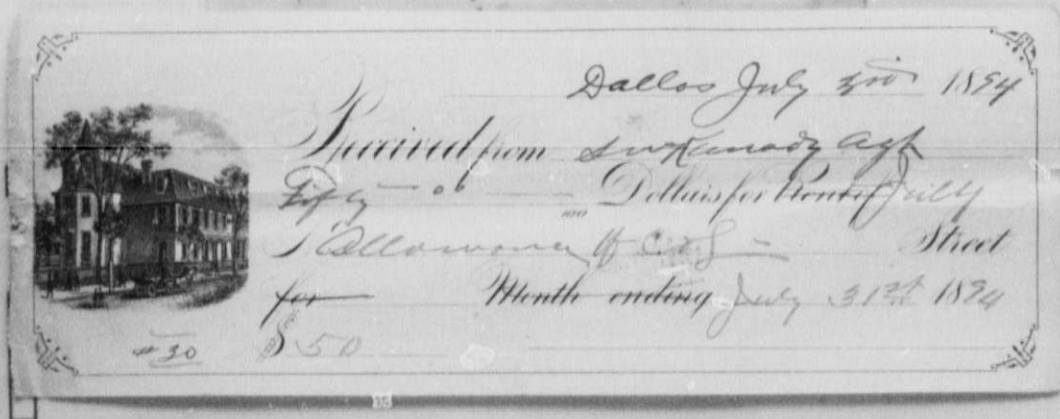 Dallas July 1894
Received from Kanady Agt
Fifty Dollars for Rent of July
Allowance Street
for Month ending July 31st 1894
#30 $50